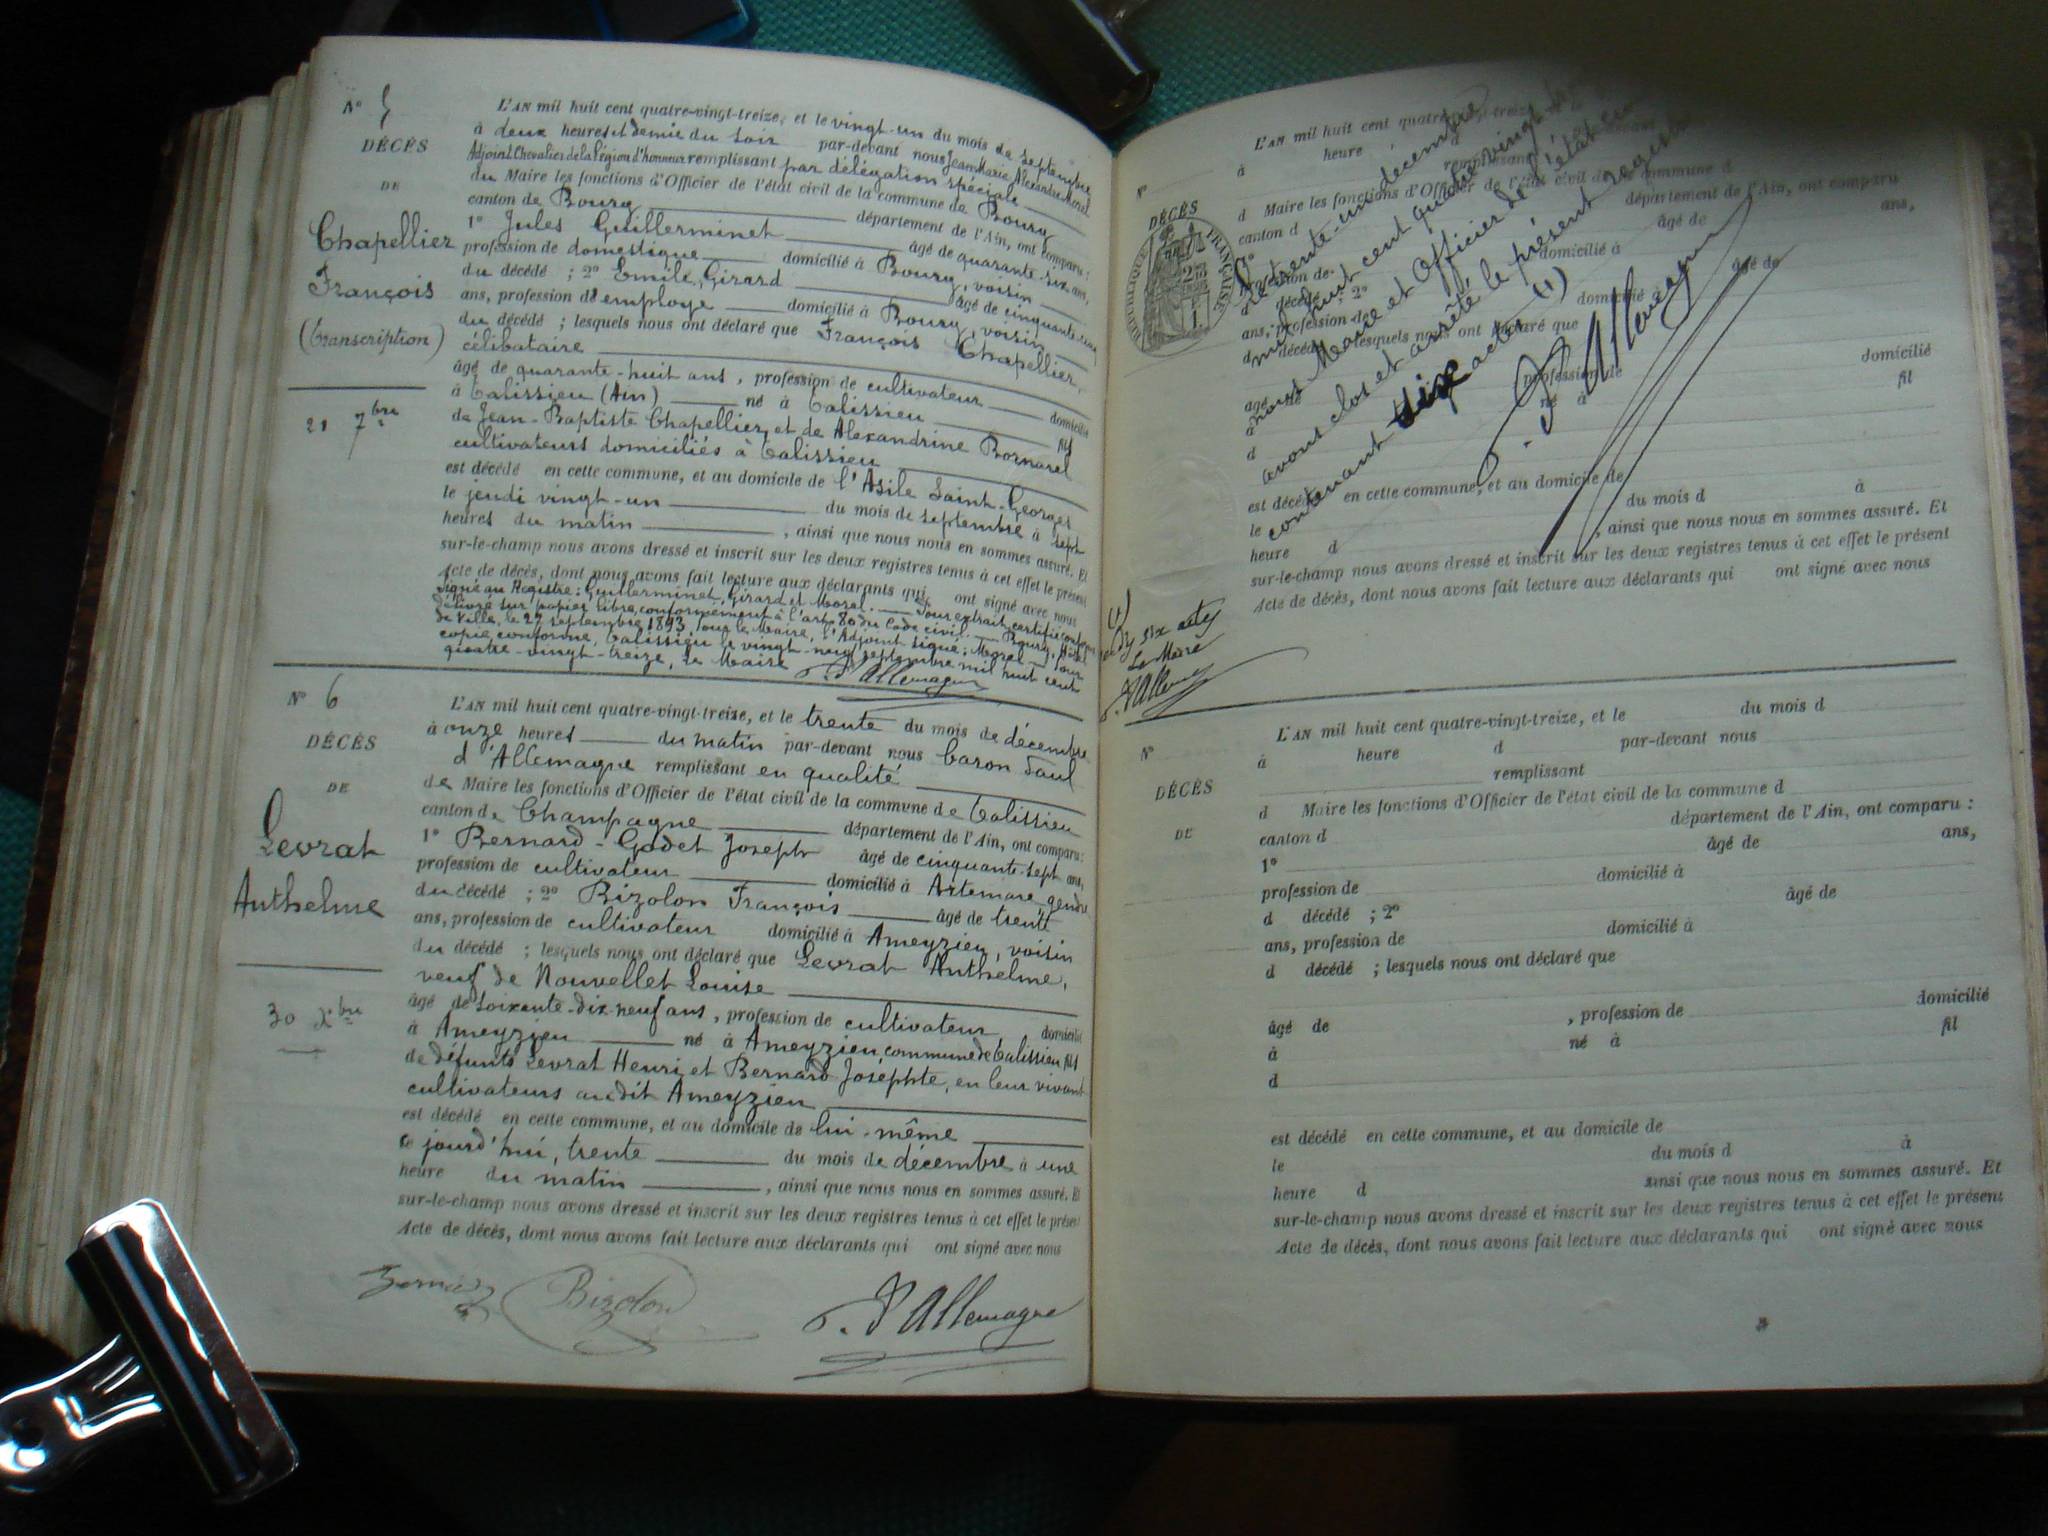 N° 5
DÉCÈS
DE
Chapellier
François
(transcription)
21 7bre
L'AN mil huit cent quatre-vingt-treize, et le vingt-un du mois de septembre
à deux heures et demie du soir par-devant nous Jean Marie Alexandre Morel
Adjoint Chevalier de la Légion d'honneur remplissant par délégation spéciale
du Maire les fonctions d'Officier de l'état civil de la commune de Bourg
canton de Bourg département de l'Ain, ont comparu :
1° Jules Guillerminet âgé de quarante-six ans,
profession de domestique domicilié à Bourg, voisin
du décédé ; 2° Emile Girard âgé de cinquante-cinq
ans, profession d'employé domicilié à Bourg, voisin
du décédé ; lesquels nous ont déclaré que François Chapellier,
célibataire
âgé de quarante-huit ans, profession de cultivateur domicilié
à Talissieu (Ain) né à Talissieu fils
de Jean-Baptiste Chapellier, et de Alexandrine Bornarel
cultivateurs domiciliés à Talissieu
est décédé en cette commune, et au domicile de l'Asile Saint-Georges
le jeudi vingt-un du mois de septembre à sept
heures du matin , ainsi que nous nous en sommes assuré. Et
sur-le-champ nous avons dressé et inscrit sur les deux registres tenus à cet effet le présent
Acte de décès, dont nous avons fait lecture aux déclarants qui ont signé avec nous
Signé au Registre : Guillerminet, Girard et Morel. — Pour extrait certifié conforme
délivré sur papier libre, conformément à l'art. 80 du Code civil. — Bourg, Hôtel
de Ville, le 27 septembre 1893, Pour le Maire, l'Adjoint signé : Morel — Pour
copie conforme, Talissieu le vingt-neuf septembre mil huit cent
quatre-vingt-treize, Le Maire P. d'Allemagne
N° 6
DÉCÈS
DE
Levrat
Anthelme
30 Xbre
L'AN mil huit cent quatre-vingt-treize, et le trente du mois de décembre
à onze heures du matin par-devant nous baron Paul
d'Allemagne remplissant en qualité
de Maire les fonctions d'Officier de l'état civil de la commune de Talissieu
canton de Champagne département de l'Ain, ont comparu :
1° Bernard-Godet Joseph âgé de cinquante-sept ans,
profession de cultivateur domicilié à Artemare, gendre
du décédé ; 2° Bizolon François âgé de trente
ans, profession de cultivateur domicilié à Ameyzieu, voisin
du décédé ; lesquels nous ont déclaré que Levrat Anthelme,
veuf de Nouvellet Louise
âgé de soixante-dix-neuf ans, profession de cultivateur, domicilié
à Ameyzieu né à Ameyzieu, commune de Talissieu fils
de défunts Levrat Henri et Bernard Josephte, en leur vivant
cultivateurs audit Ameyzieu
est décédé en cette commune, et au domicile de lui-même
ce jourd'hui, trente du mois de décembre à une
heure du matin , ainsi que nous nous en sommes assuré. Et
sur-le-champ nous avons dressé et inscrit sur les deux registres tenus à cet effet le présent
Acte de décès, dont nous avons fait lecture aux déclarants qui ont signé avec nous
Bernard Bizolon P. d'Allemagne
N°
DÉCÈS
RÉPUBLIQUE FRANÇAISE
L'AN mil huit cent quatre-vingt-treize
à heure d
remplissant
d Maire les fonctions d'Officier de l'état civil de la commune d
canton d département de l'Ain, ont comparu
1° âgé de ans,
profession de domicilié à
d décédé ; 2° âgé de
ans, profession de domicilié à
d décédé lesquels nous ont déclaré que
âgé de profession de domicilié
à né à fil
d
est décédé en cette commune, et au domicile de
le du mois d à
heure d , ainsi que nous nous en sommes assuré. Et
sur-le-champ nous avons dressé et inscrit sur les deux registres tenus à cet effet le présent
Acte de décès, dont nous avons fait lecture aux déclarants qui ont signé avec nous
trente-un décembre
mil huit cent quatre vingt
nous Maire et Officier de l'état civil
avons clos et arrêté le présent registre
contenant six actes (1)
P. d'Allemagne
(1)
six actes
Le Maire
P. d'Allemagne
N°
DÉCÈS
DE
L'AN mil huit cent quatre-vingt-treize, et le du mois d
à heure d par-devant nous
remplissant
d Maire les fonctions d'Officier de l'état civil de la commune d
canton d département de l'Ain, ont comparu :
1° âgé de ans,
profession de domicilié à
d décédé ; 2° âgé de
ans, profession de domicilié à
d décédé ; lesquels nous ont déclaré que
âgé de , profession de domicilié
à né à fil
d
est décédé en cette commune, et au domicile de
le du mois d à
heure d ainsi que nous nous en sommes assuré. Et
sur-le-champ nous avons dressé et inscrit sur les deux registres tenus à cet effet le présent
Acte de décès, dont nous avons fait lecture aux déclarants qui ont signé avec nous